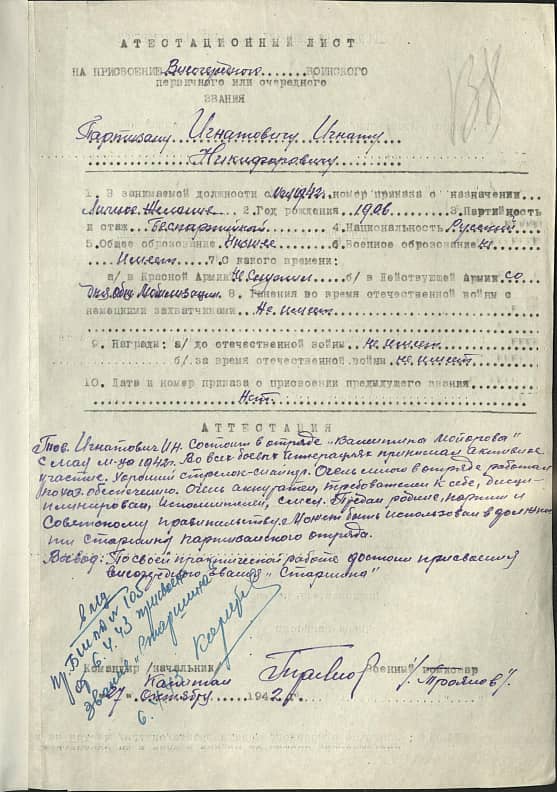 АТТЕСТАЦИОННЫЙ ЛИСТ
НА ПРИСВОЕНИЕ Внеочередного ВОИНСКОГО
первичного или очередного
ЗВАНИЯ
138
Партизану Игнатовичу Игнату
Никифоровичу
1. В занимаемой должности с Мая 1942г. номер приказа о назначении
Личное Желание 2.Год рождения 1906 3.Партийность
и стаж Беспартийный 4.Национальность Русский
5.Общее образование Низшее 6.Военное образование Не
Имеет 7.С какого времени:
а/ в Красной Армии Не Служил б/ в Действующей Армии со
дня общ. Мобилизации 8. Ранения во время отечественной войны с
немецкими захватчиками Не имеет
9. Награды: а/ до отечественной войны Не имеет
б/ за время отечественной войны не имеет
10. Дата и номер приказа о присвоении предыдущего звания
Нет.
АТТЕСТАЦИЯ
Тов. Игнатович И.Н. Состоит в отряде "Валентина Майорова"
с мая м-ца 1942г. Во всех боевых операциях принимал активное
участие. Хороший стрелок-снайпер. Очень много в отряде работал
по хоз.обеспечению. Очень аккуратен, требователен к себе, дисци-
плинирован, исполнителен, смел. Предан родине, партии и
Советскому правительству. Может быть использован в должнос-
ти старшины партизанского отряда.
Вывод: По своей практической работе достоин присвоения
внеочередного звания "Старшина"
пр. БШПД № 705
от 6.4.43 присвоено
звание "Старшина"
Командир /начальник/ Военный комиссар
Капитан /Троянов/
"27" Октября 1942 г.